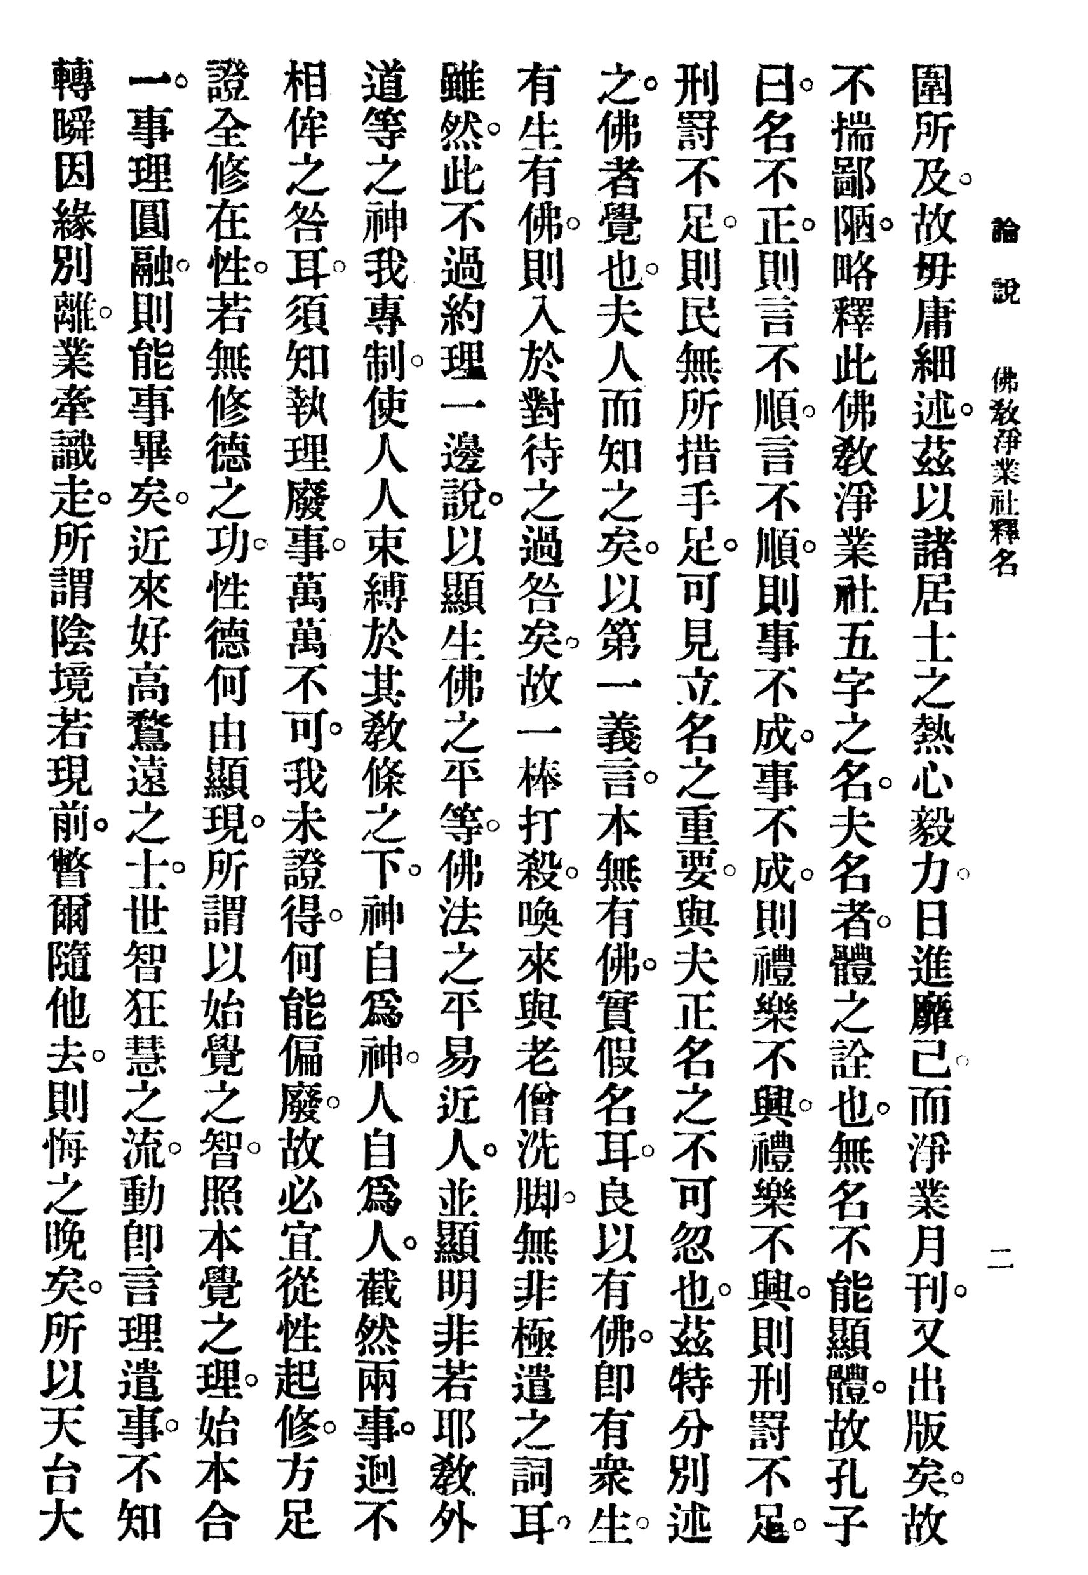 論說　佛教淨業社釋名　二
圍所及。故毋庸細述。茲以諸居士之熱心毅力。日進靡已。而淨業月刊。又出版矣。故
不揣鄙陋。略釋此佛教淨業社五字之名。夫名者。體之詮也。無名不能顯體。故孔子
曰。名不正。則言不順。言不順。則事不成。事不成。則禮樂不興。禮樂不興。則刑罰不足。
刑罰不足。則民無所措手足。可見立名之重要。與夫正名之不可忽也。茲特分別述
之。佛者覺也。夫人而知之矣。以第一義言。本無有佛。實假名耳。良以有佛。卽有衆生。
有生有佛。則入於對待之過咎矣。故一棒打殺。喚來與老僧洗脚。無非極遣之詞耳。
雖然。此不過約理一邊說。以顯生佛之平等。佛法之平易近人。並顯明非若耶教外
道等之神我專制。使人人束縛於其教條之下。神自爲神。人自爲人。截然兩事。迥不
相侔之咎耳。須知執理廢事。萬萬不可。我未證得。何能偏廢。故必宜從性起修。方足
證全修在性。若無修德之功。性德何由顯現。所謂以始覺之智。照本覺之理。始本合
一。事理圓融。則能事畢矣。近來好高騖遠之士。世智狂慧之流。動卽言理遣事。不知
轉瞬因緣別離。業牽識走。所謂陰境若現前。瞥爾隨他去。則悔之晚矣。所以天台大